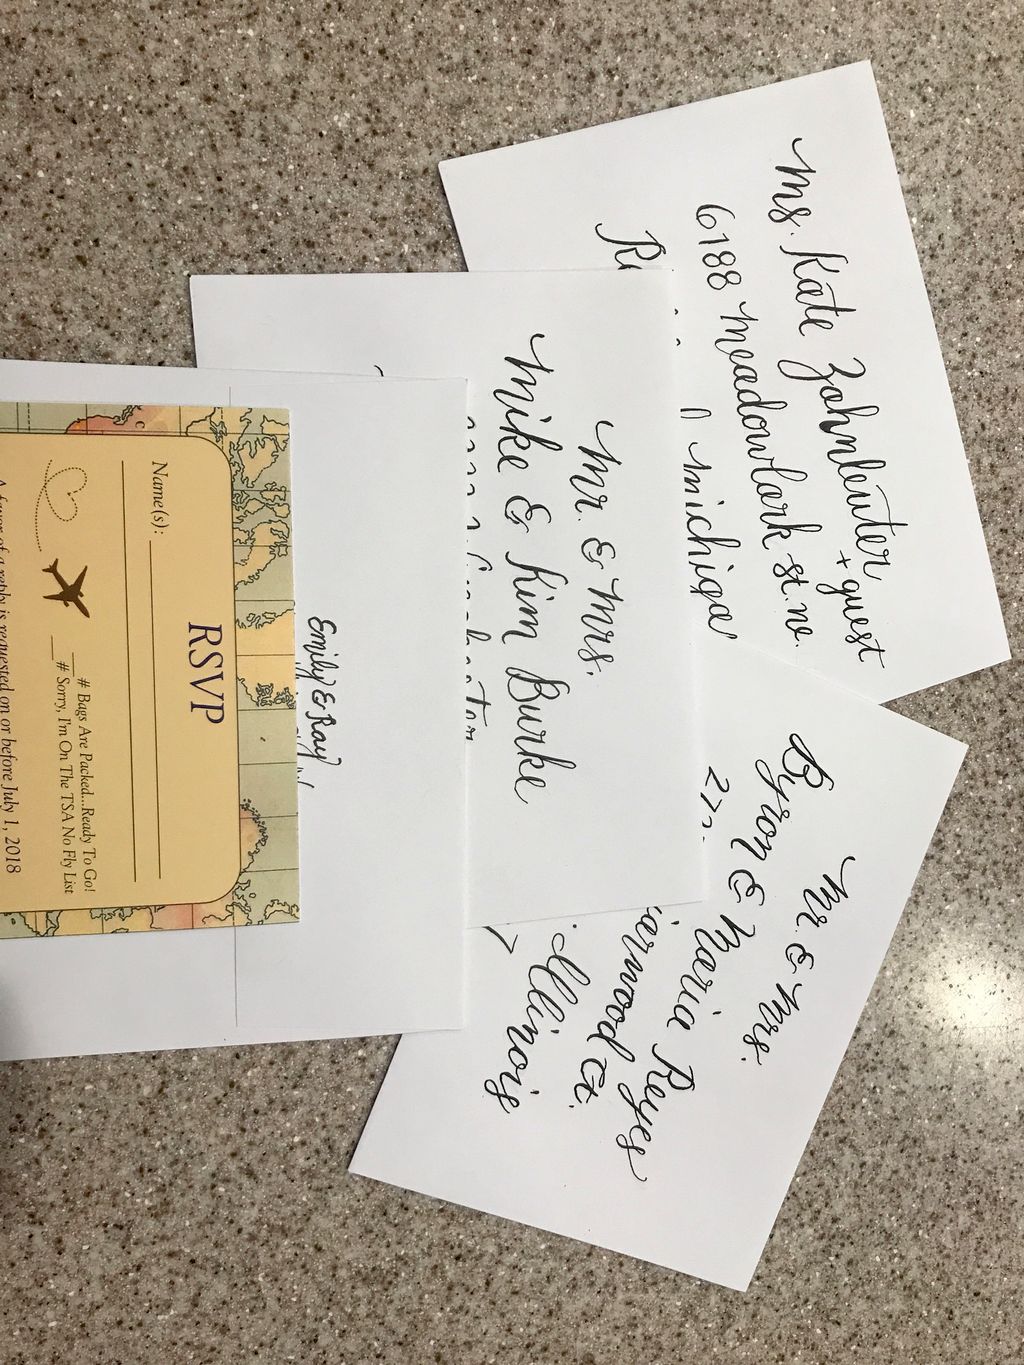 Ms. Kate Zahnleuter
+ guest
6188 Meadowlark St. NE.
Michiga
Mr. & Mrs.
Mike & Kim Burke
Mr. & Mrs.
Byron & Maria Reyes
Ct.
Illinois
Emily & Ray
RSVP
Name(s):
# Bags Are Packed...Ready To Go!
# Sorry, I'm On The TSA No Fly List
A favor of a reply is requested on or before July 1, 2018